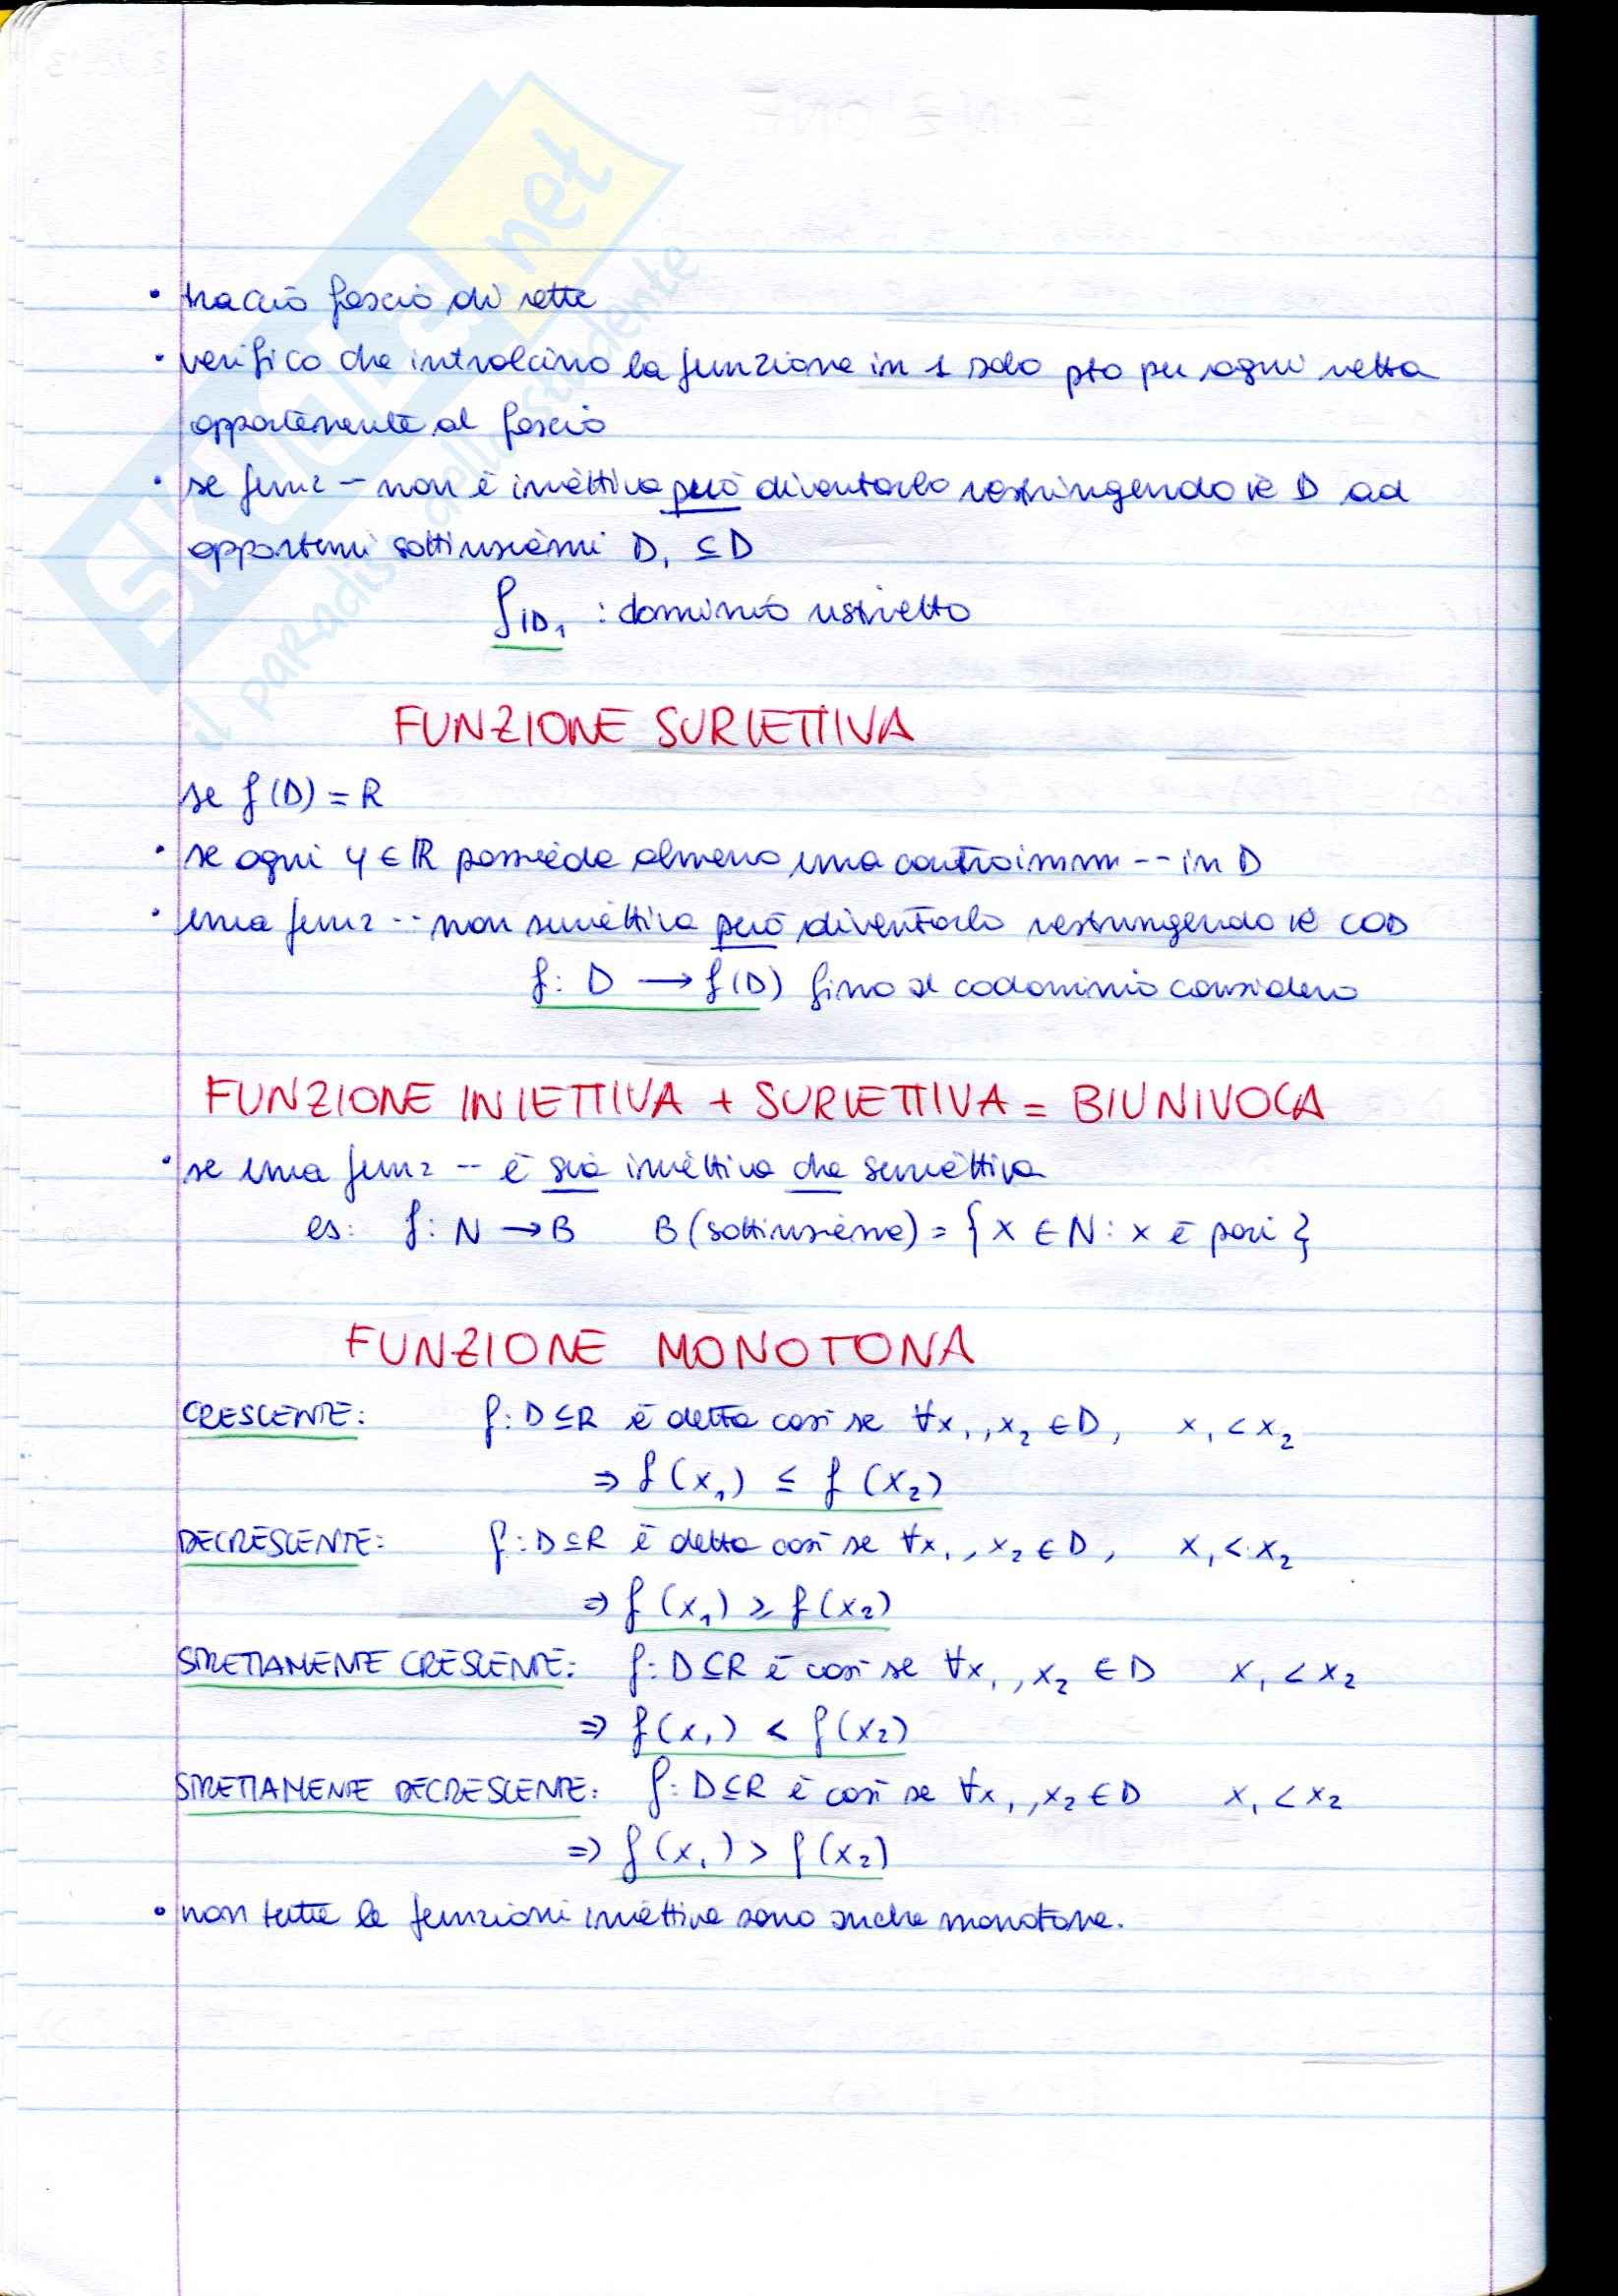 skuola.net
il paradiso dello studente
• traccio fascio di rette
• verifico che intralcino la funzione in 1 solo pto per ogni retta
appartenente al fascio
• se funz – non è iniettiva può diventarlo restringendo il D ad
opportuni sottinsiemi D₁ ⊆ D
f|D₁ : dominio ristretto
FUNZIONE SURIETTIVA
se f(D) = R
• se ogni y ∈ ℝ possiede almeno una controimm -- in D
• una funz -- non suriettiva può diventarlo restringendo il COD
f: D → f(D) fino al codominio considero
FUNZIONE INIETTIVA + SURIETTIVA = BIUNIVOCA
• se una funz -- è sia iniettiva che suriettiva
es: f: N → B B (sottinsieme) = { x ∈ N : x è pari }
FUNZIONE MONOTONA
CRESCENTE: f: D ⊆ R è detta così se ∀x₁, x₂ ∈ D, x₁ < x₂
⇒ f(x₁) ≤ f(x₂)
DECRESCENTE: f: D ⊆ R è detta così se ∀x₁, x₂ ∈ D, x₁ < x₂
⇒ f(x₁) ≥ f(x₂)
STRETTAMENTE CRESCENTE: f: D ⊆ R è così se ∀x₁, x₂ ∈ D x₁ < x₂
⇒ f(x₁) < f(x₂)
STRETTAMENTE DECRESCENTE: f: D ⊆ R è così se ∀x₁, x₂ ∈ D x₁ < x₂
⇒ f(x₁) > f(x₂)
• non tutte le funzioni iniettive sono anche monotone.